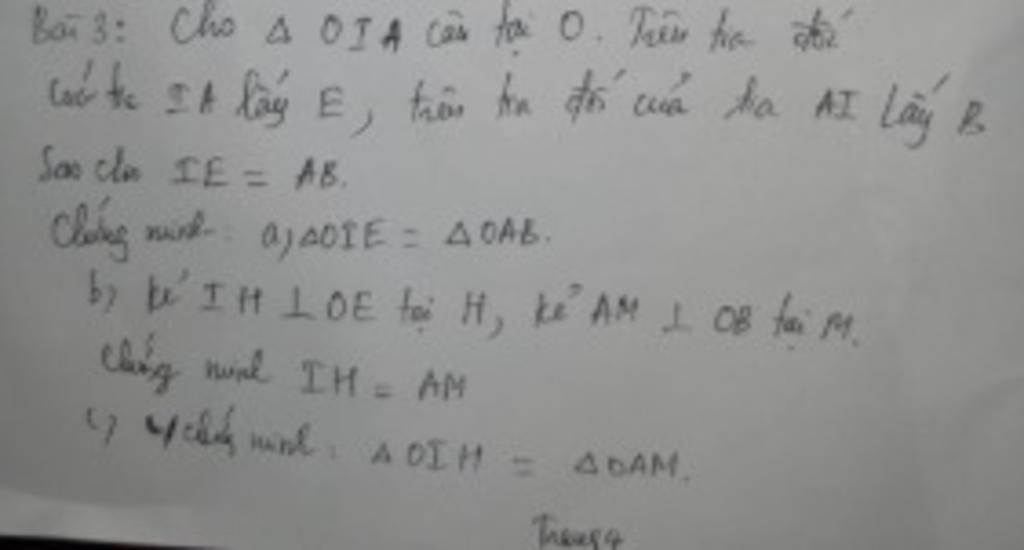 Bài 3: Cho Δ OIA cân tại O. Trên tia đối
của tia IA lấy E, trên tia đối của tia AI lấy B
Sao cho IE = AB.
Chứng minh: a) ΔOIE = ΔOAB.
b) kẻ IH ⊥ OE tại H, kẻ AM ⊥ OB tại M.
Chứng minh IH = AM
c) chứng minh: ΔOIH = ΔOAM.
Trang 4